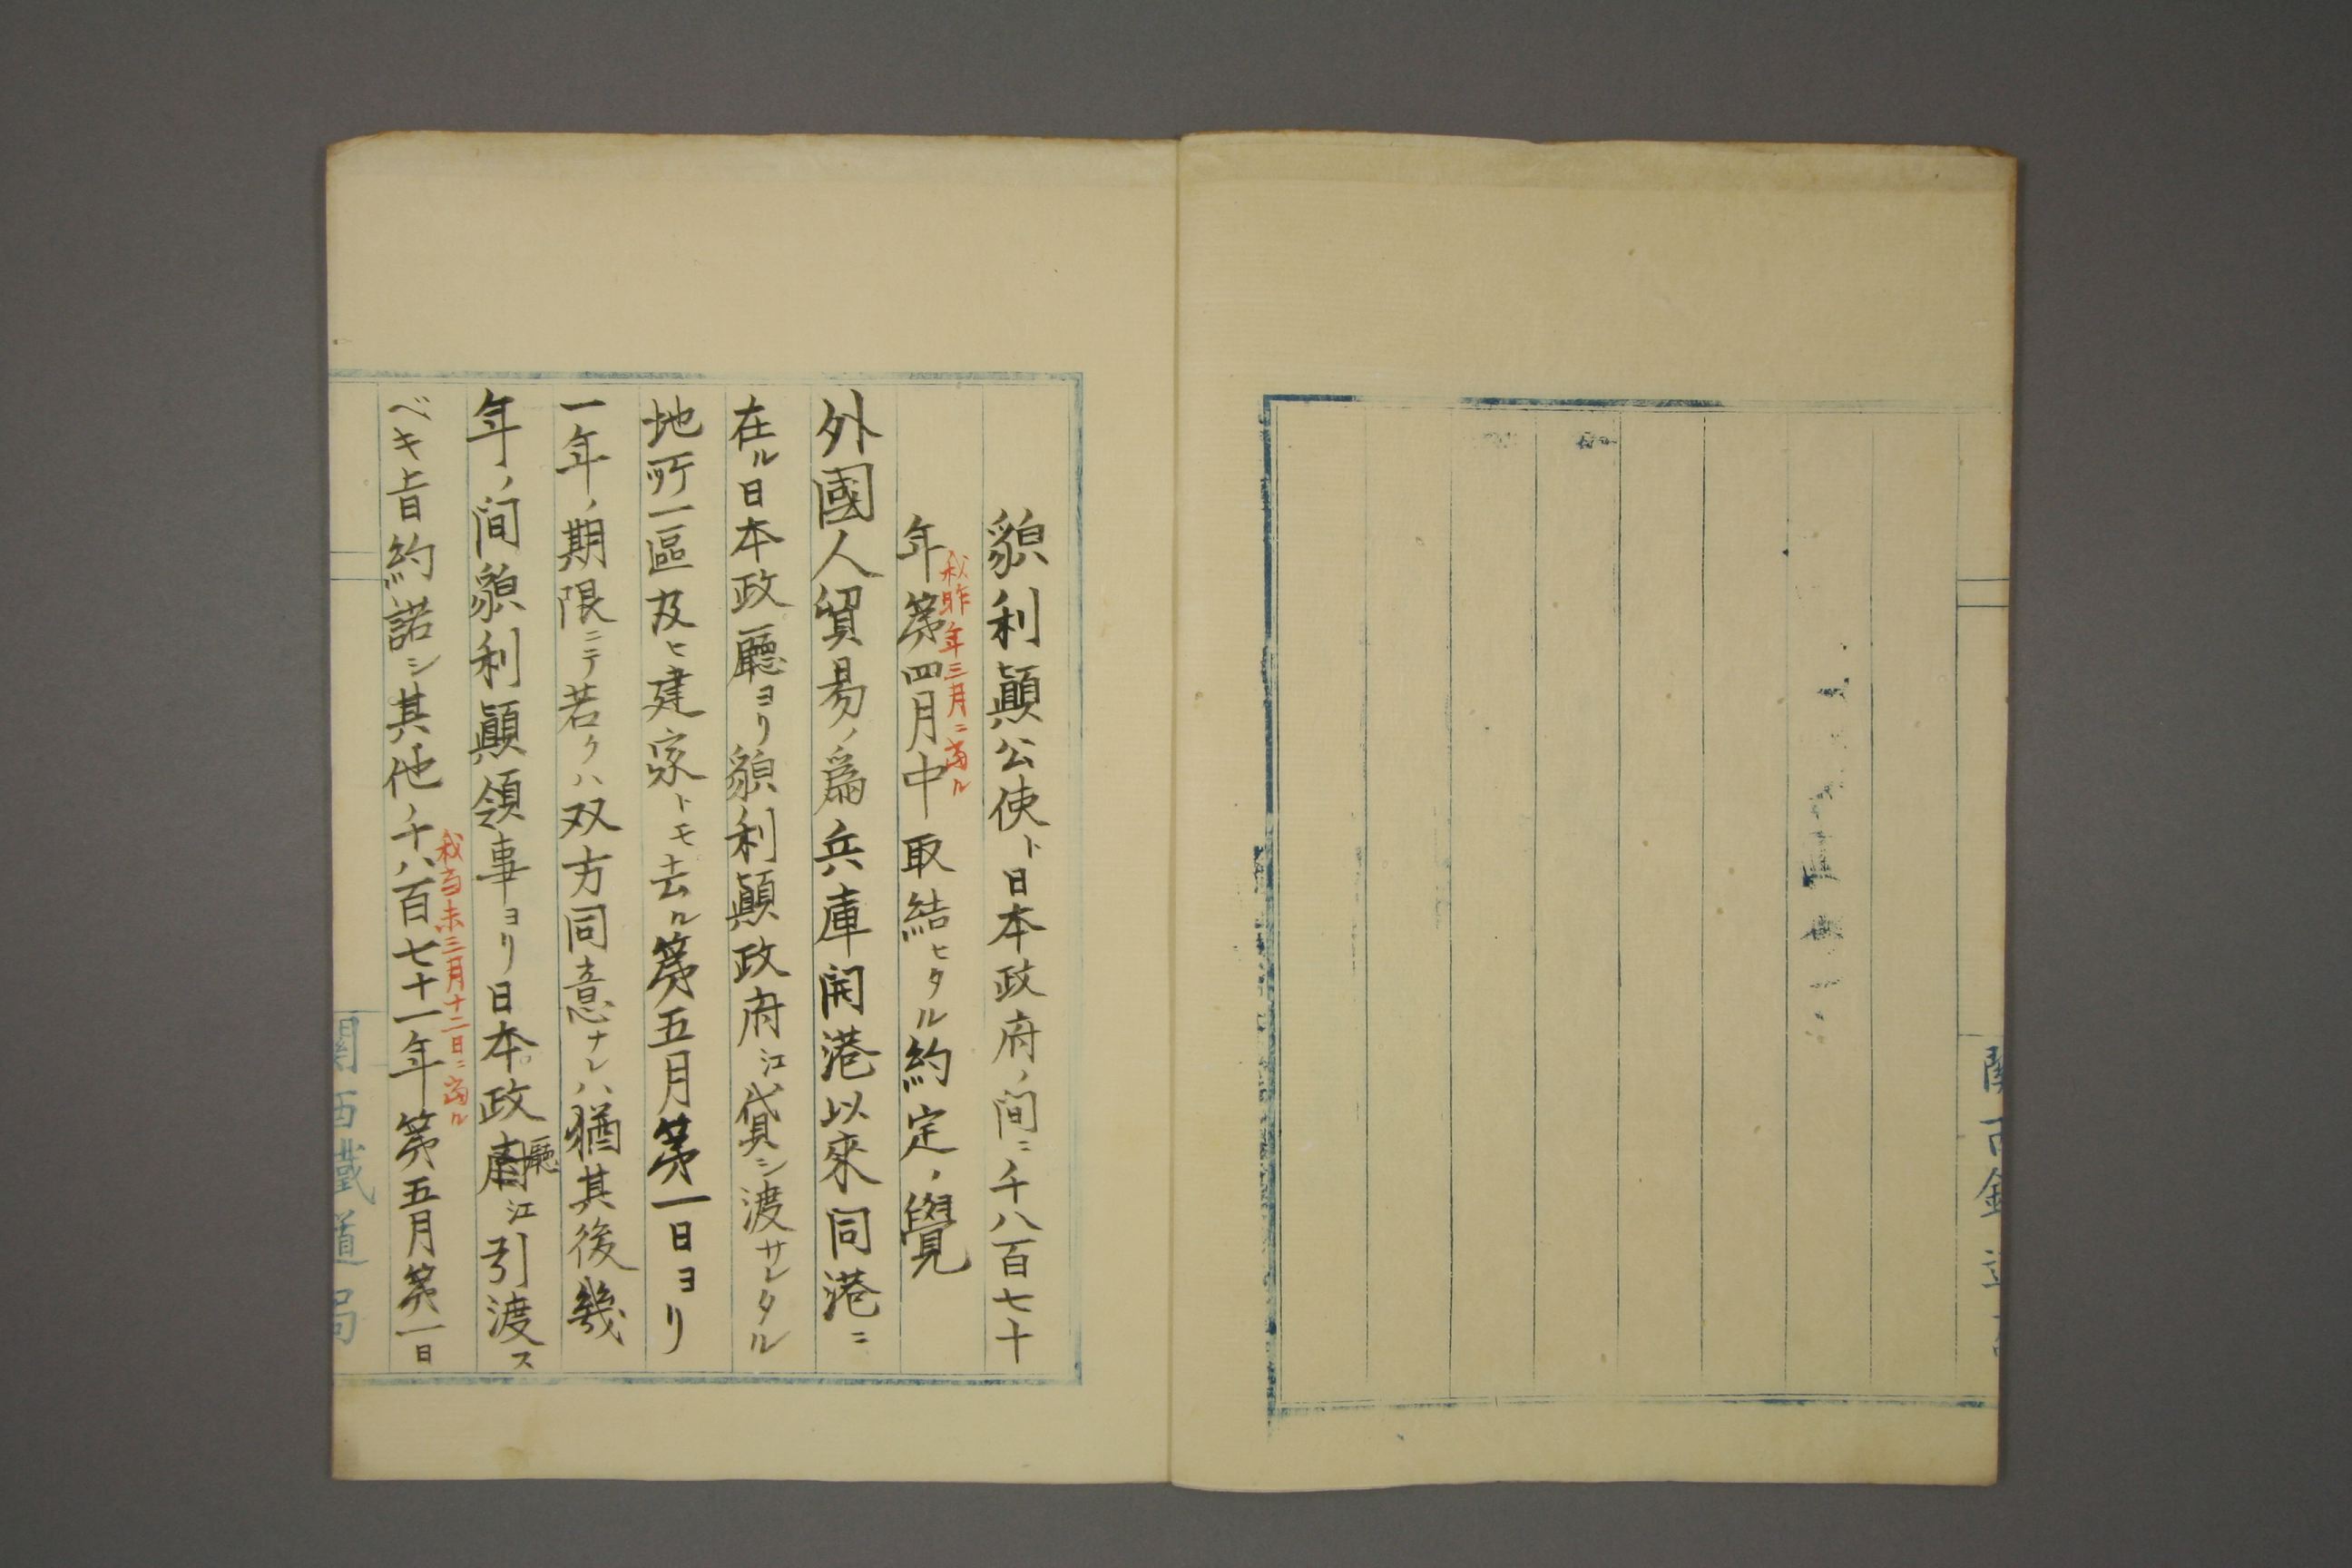 貌利顛公使ト日本政府ノ間ニ千八百七十
我昨年三月ニ當ル
年第四月中取結ヒタル約定ノ覺
外國人貿易ノ爲兵庫開港以來同港ニ
在ル日本政廳ヨリ貌利顛政府江貸シ渡サレタル
地所一區及ヒ建家トモ去ル第五月第一日ヨリ
一年ノ期限ニテ若クハ双方同意ナレハ猶其後幾
年ノ間貌利顛領事ヨリ日本政廳江引渡ス
我当未三月十二日ニ當ル
ベキ旨約諾シ其他ノ千八百七十一年第五月第一日
關西鐵道局